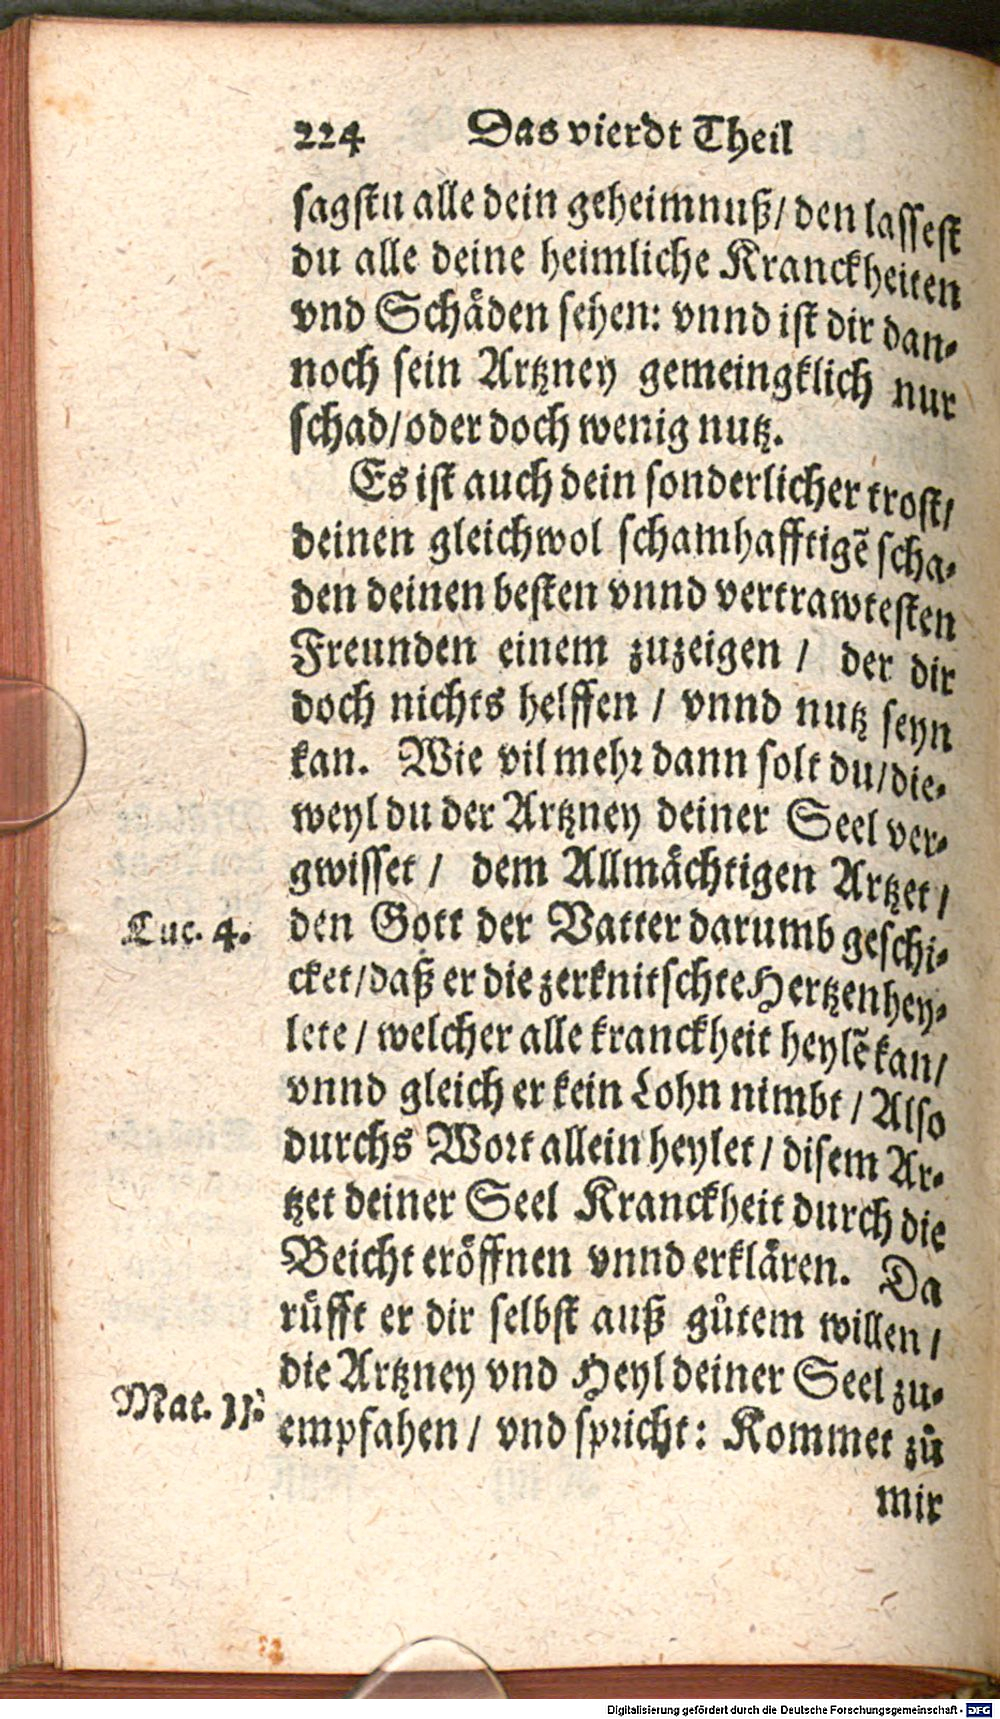 224 Das vierdt Theil
sagstu alle dein geheimnuß/ den lassest
du alle deine heimliche Kranckheiten
vnd Schåden sehen: vnnd ist dir dan-
noch sein Artzney gemeingklich nur
schad/ oder doch wenig nutz.
Es ist auch dein sonderlicher trost/
deinen gleichwol schamhafftigē scha-
den deinen besten vnnd vertrawtesten
Freunden einem zuzeigen / der dir
doch nichts helffen / vnnd nutz seyn
kan. Wie vil mehr dann solt du/ die-
weyl du der Artzney deiner Seel ver-
gwisset / dem Allmächtigen Artzet /
Luc. 4. den Gott der Vatter darumb geschi-
cket/ daß er die zerknitschte Hertzen hey-
lete / welcher alle kranckheit heylē kan/
vnnd gleich er kein Lohn nimbt / Also
durchs Wort allein heylet / disem Ar-
tzet deiner Seel Kranckheit durch die
Beicht eröffnen vnnd erklären. Da
rüfft er dir selbst auß gůtem willen /
die Artzney vnd Heyl deiner Seel zu-
Mat. 11. empfahen / vnd spricht: Kommet zů
mir
Digitalisierung gefördert durch die Deutsche Forschungsgemeinschaft - DFG